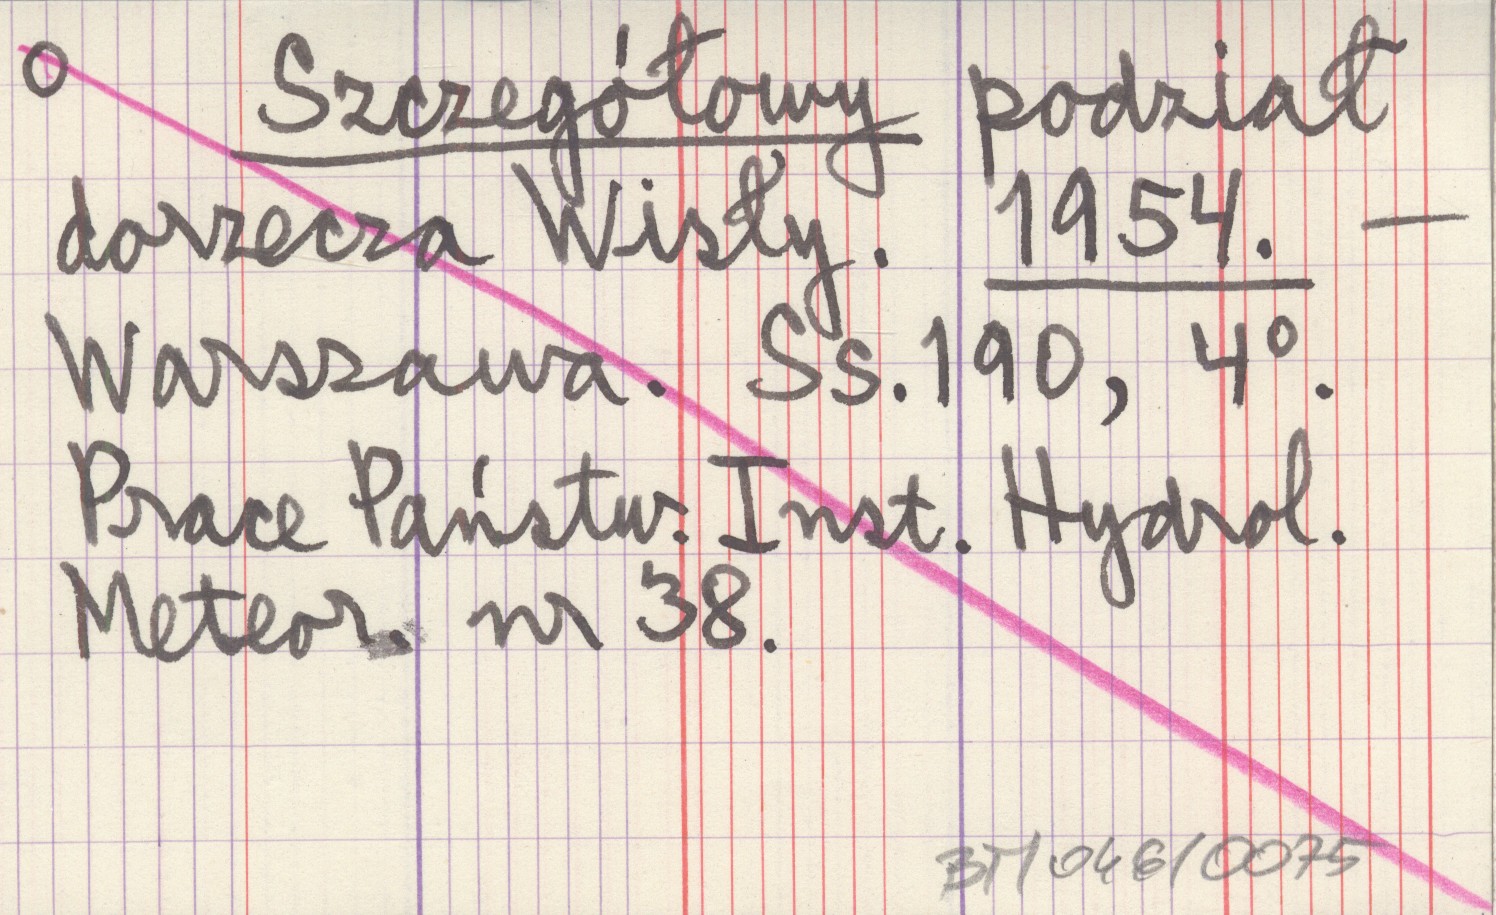 O Szczegółowy podział
dorzecza Wisły. 1954. —
Warszawa. Ss. 190, 4°.
Prace Państw. Inst. Hydrol.
Meteor. nr 38.
BT/046/0075